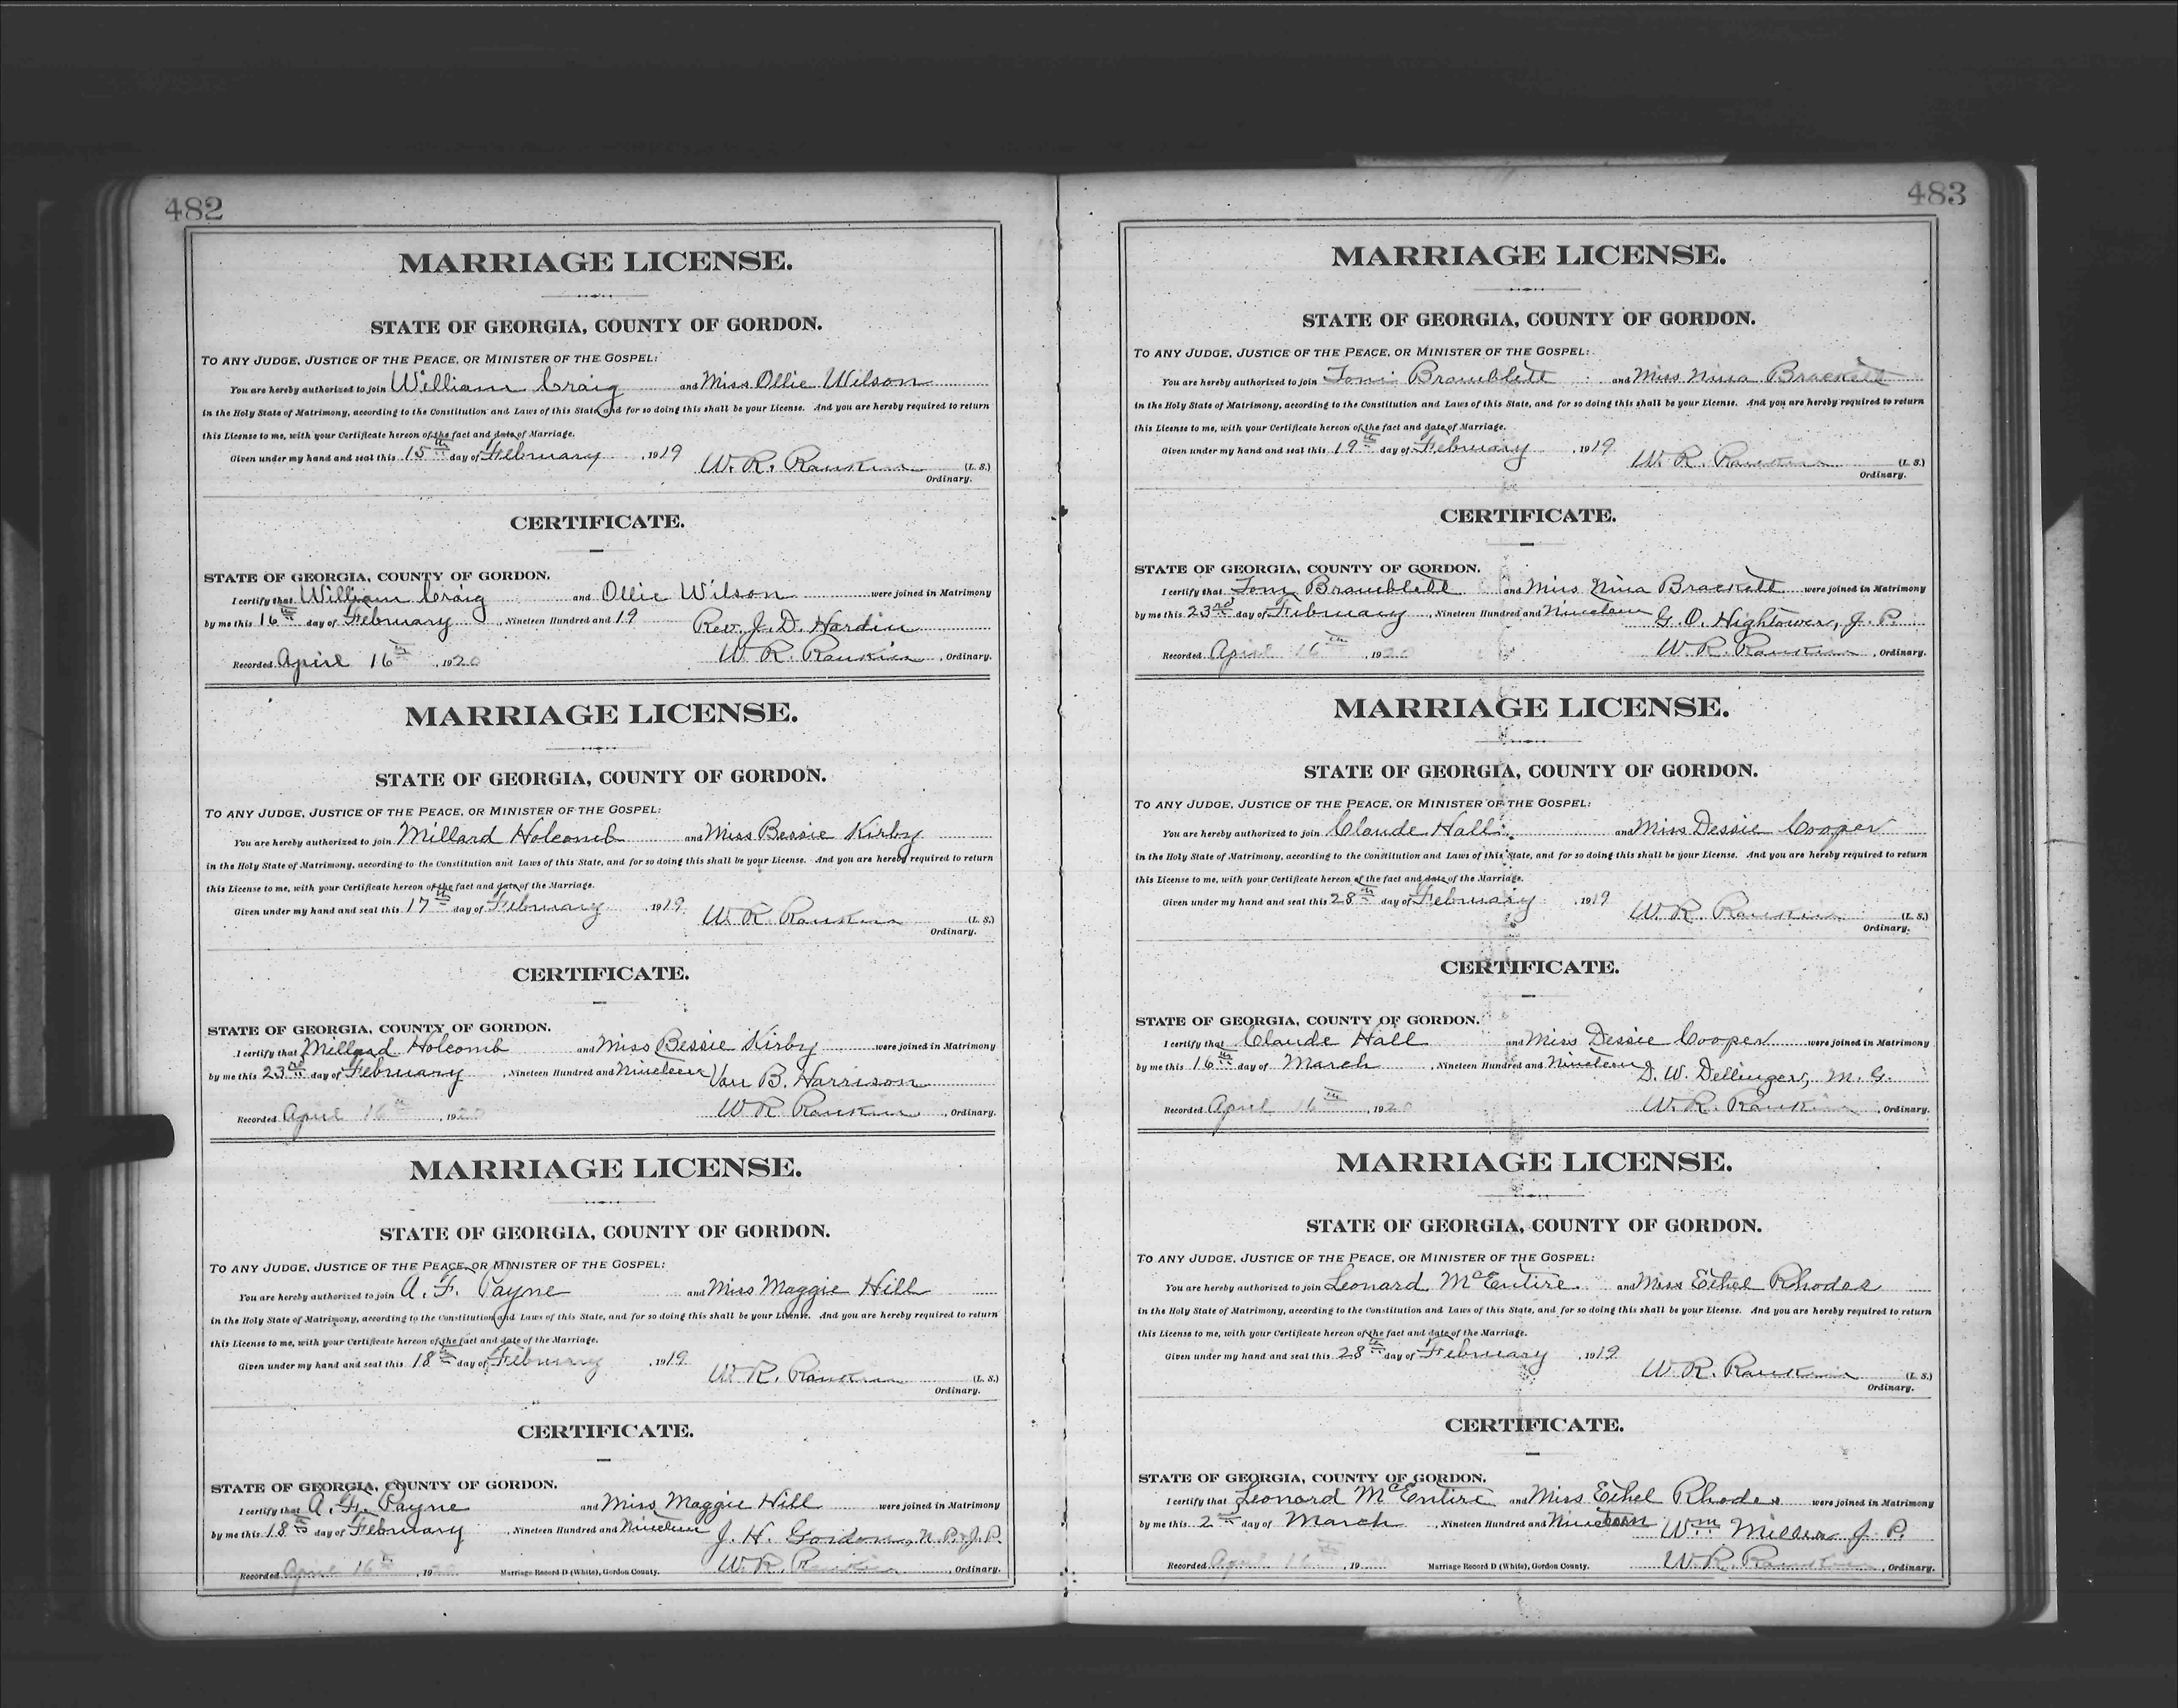 482
MARRIAGE LICENSE.
STATE OF GEORGIA, COUNTY OF GORDON.
TO ANY JUDGE, JUSTICE OF THE PEACE, OR MINISTER OF THE GOSPEL:
You are hereby authorized to join William Craig and Miss Ollie Wilson
in the Holy State of Matrimony, according to the Constitution and Laws of this State, and for so doing this shall be your License. And you are hereby required to return
this License to me, with your Certificate hereon of the fact and date of Marriage.
Given under my hand and seal this 15th day of February, 1919 W. R. Rankin (L. S.)
Ordinary.
CERTIFICATE.
STATE OF GEORGIA, COUNTY OF GORDON.
I certify that William Craig and Ollie Wilson were joined in Matrimony
by me this 16th day of February, Nineteen Hundred and 19 Rev. J. D. Hardin
Recorded April 16th, 1920 W. R. Rankin, Ordinary.
MARRIAGE LICENSE.
STATE OF GEORGIA, COUNTY OF GORDON.
TO ANY JUDGE, JUSTICE OF THE PEACE, OR MINISTER OF THE GOSPEL:
You are hereby authorized to join Millard Holcomb and Miss Bessie Kirby
in the Holy State of Matrimony, according to the Constitution and Laws of this State, and for so doing this shall be your License. And you are hereby required to return
this License to me, with your Certificate hereon of the fact and date of the Marriage.
Given under my hand and seal this 17th day of February, 1919 W. R. Rankin (L. S.)
Ordinary.
CERTIFICATE.
STATE OF GEORGIA, COUNTY OF GORDON.
I certify that Millard Holcomb and Miss Bessie Kirby were joined in Matrimony
by me this 23rd day of February, Nineteen Hundred and Nineteen Van B. Harrison
Recorded April 16th, 1920 W. R. Rankin, Ordinary.
MARRIAGE LICENSE.
STATE OF GEORGIA, COUNTY OF GORDON.
TO ANY JUDGE, JUSTICE OF THE PEACE, OR MINISTER OF THE GOSPEL:
You are hereby authorized to join A. F. Payne and Miss Maggie Hill
in the Holy State of Matrimony, according to the Constitution and Laws of this State, and for so doing this shall be your License. And you are hereby required to return
this License to me, with your Certificate hereon of the fact and date of the Marriage.
Given under my hand and seal this 18th day of February, 1919 W. R. Rankin (L. S.)
Ordinary.
CERTIFICATE.
STATE OF GEORGIA, COUNTY OF GORDON.
I certify that A. F. Payne and Miss Maggie Hill were joined in Matrimony
by me this 18th day of February, Nineteen Hundred and Nineteen J. H. Gordon, N. P. & J. P.
Recorded April 16th, 19 Marriage Record D (White), Gordon County. W. R. Rankin, Ordinary.
483
MARRIAGE LICENSE.
STATE OF GEORGIA, COUNTY OF GORDON.
TO ANY JUDGE, JUSTICE OF THE PEACE, OR MINISTER OF THE GOSPEL:
You are hereby authorized to join Tom Bramblett and Miss Nina Brackett
in the Holy State of Matrimony, according to the Constitution and Laws of this State, and for so doing this shall be your License. And you are hereby required to return
this License to me, with your Certificate hereon of the fact and date of Marriage.
Given under my hand and seal this 19th day of February, 1919 W. R. Rankin (L. S.)
Ordinary.
CERTIFICATE.
STATE OF GEORGIA, COUNTY OF GORDON.
I certify that Tom Bramblett and Miss Nina Brackett were joined in Matrimony
by me this 23rd day of February, Nineteen Hundred and Nineteen G. O. Hightower, J. P.
Recorded April 16th, 1920 W. R. Rankin, Ordinary.
MARRIAGE LICENSE.
STATE OF GEORGIA, COUNTY OF GORDON.
TO ANY JUDGE, JUSTICE OF THE PEACE, OR MINISTER OF THE GOSPEL:
You are hereby authorized to join Claude Hall and Miss Dessie Cooper
in the Holy State of Matrimony, according to the Constitution and Laws of this State, and for so doing this shall be your License. And you are hereby required to return
this License to me, with your Certificate hereon of the fact and date of the Marriage.
Given under my hand and seal this 28th day of February, 1919 W. R. Rankin (L. S.)
Ordinary.
CERTIFICATE.
STATE OF GEORGIA, COUNTY OF GORDON.
I certify that Claude Hall and Miss Dessie Cooper were joined in Matrimony
by me this 16th day of March, Nineteen Hundred and Nineteen D. W. Dellinger, M. G.
Recorded April 16th, 1920 W. R. Rankin, Ordinary.
MARRIAGE LICENSE.
STATE OF GEORGIA, COUNTY OF GORDON.
TO ANY JUDGE, JUSTICE OF THE PEACE, OR MINISTER OF THE GOSPEL:
You are hereby authorized to join Leonard McEntire and Miss Ethel Rhodes
in the Holy State of Matrimony, according to the Constitution and Laws of this State, and for so doing this shall be your License. And you are hereby required to return
this License to me, with your Certificate hereon of the fact and date of the Marriage.
Given under my hand and seal this 28th day of February, 1919 W. R. Rankin (L. S.)
Ordinary.
CERTIFICATE.
STATE OF GEORGIA, COUNTY OF GORDON.
I certify that Leonard McEntire and Miss Ethel Rhodes were joined in Matrimony
by me this 2nd day of March, Nineteen Hundred and Nineteen Wm Miller J. P.
Recorded April 16th, 19 Marriage Record D (White), Gordon County. W. R. Rankin, Ordinary.